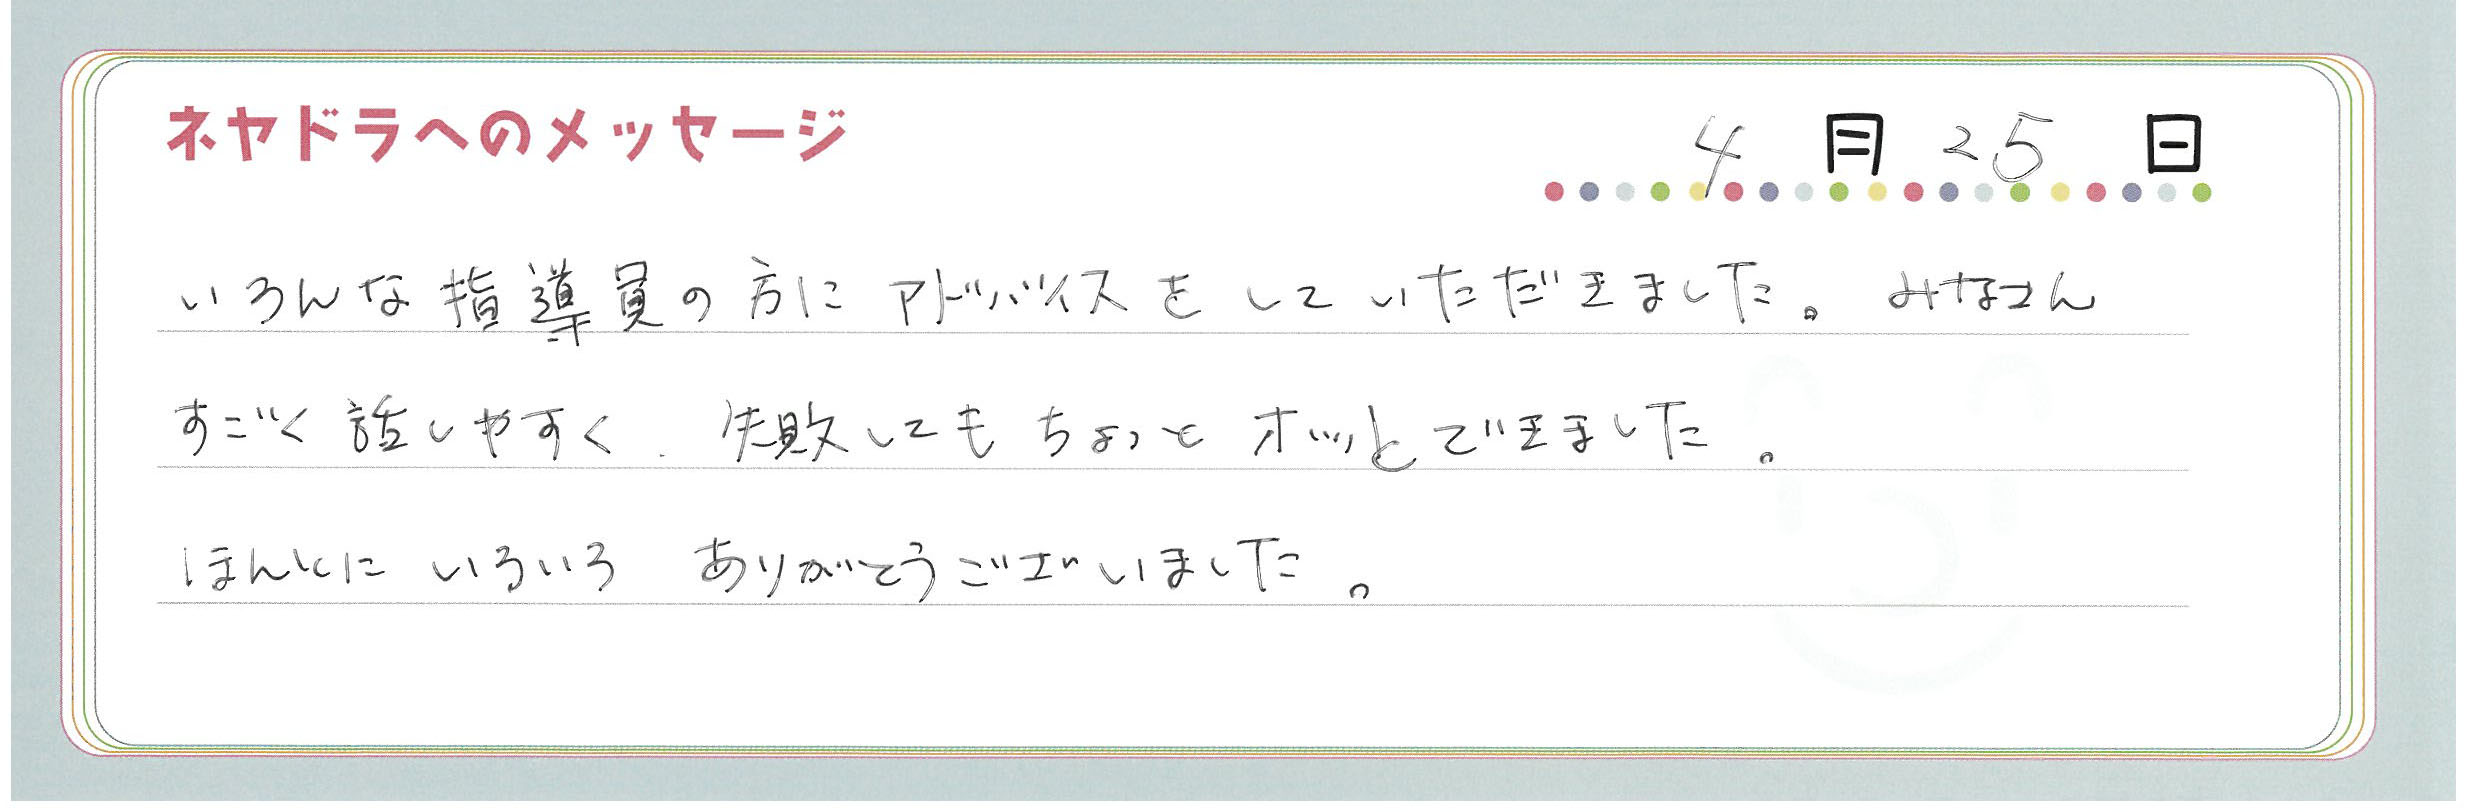 ネヤドラへのメッセージ
4月25日
いろんな指導員の方にアドバイスをしていただきました。みなさん
すごく話しやすく、失敗してもちょっとホッとできました。
ほんとにいろいろありがとうございました。